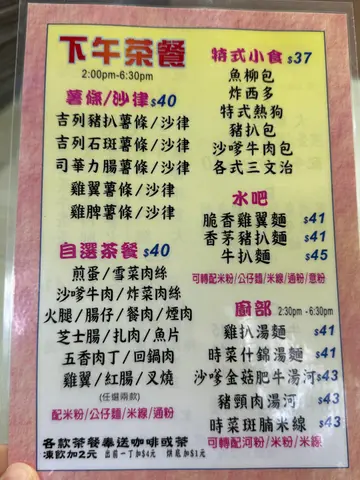 下午茶餐
2:00pm-6:30pm
薯條/沙律 $40
吉列豬扒薯條/沙律
吉列石斑薯條/沙律
司華力腸薯條/沙律
雞翼薯條/沙律
雞脾薯條/沙律
自選茶餐 $40
煎蛋/雪菜肉絲
沙嗲牛肉/炸菜肉絲
火腿/腸仔/餐肉/煙肉
芝士腸/扎肉/魚片
五香肉丁/回鍋肉
雞翼/紅腸/叉燒
(任選兩款)
配米粉/公仔麵/米線/通粉
各款茶餐奉送咖啡或茶
凍飲加2元 出前一丁加$4元 烘底加$1元
特式小食 $37
魚柳包
炸西多
特式熱狗
豬扒包
沙嗲牛肉包
各式三文治
水吧
脆香雞翼麵 $41
香茅豬扒麵 $41
牛扒麵 $45
可轉配米粉/公仔麵/米線/通粉/意粉
廚部 2:30pm -6:30pm
雞扒湯麵 $41
時菜什錦湯麵 $41
沙嗲金菇肥牛湯河 $43
豬頸肉湯河 $43
時菜斑腩米線 $43
可轉配河粉/米粉/米線